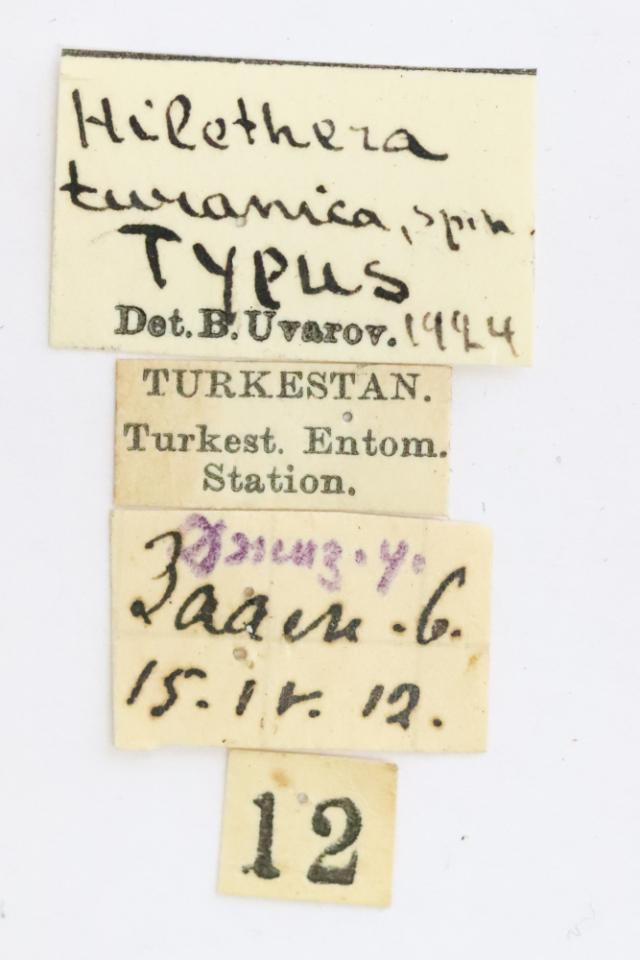 Hilethera
turanica, sp. n.
Typus
Det. B. Uvarov. 1924
TURKESTAN.
Turkest. Entom.
Station.
Джиз. у.
Заамин. б.
15. IV. 12.
12